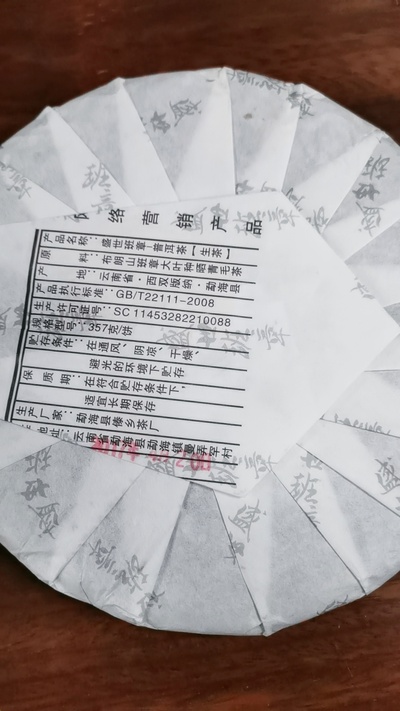 络营销产品
产品名称：盛世班章—普洱茶【生茶】
原　　料：布朗山班章大叶种晒青毛茶
产　　地：云南省·西双版纳·勐海县
产品执行标准：GB/T22111-2008
生产许可证号：SC 11453282210088
规格型号：357克/饼
贮存条件：在通风、阴凉、干燥、
避光的环境下贮存
保 质 期：在符合贮存条件下，
适宜长期保存
生产厂家：勐海县傣乡茶厂
地址：云南省勐海县勐海镇曼弄罕村